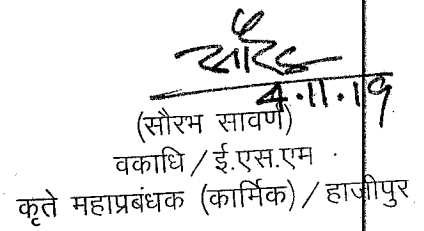 सौरभ
4.11.19
(सौरभ सावर्ण)
वकाधि / ई.एस.एम
कृते महाप्रबंधक (कार्मिक) / हाजीपुर